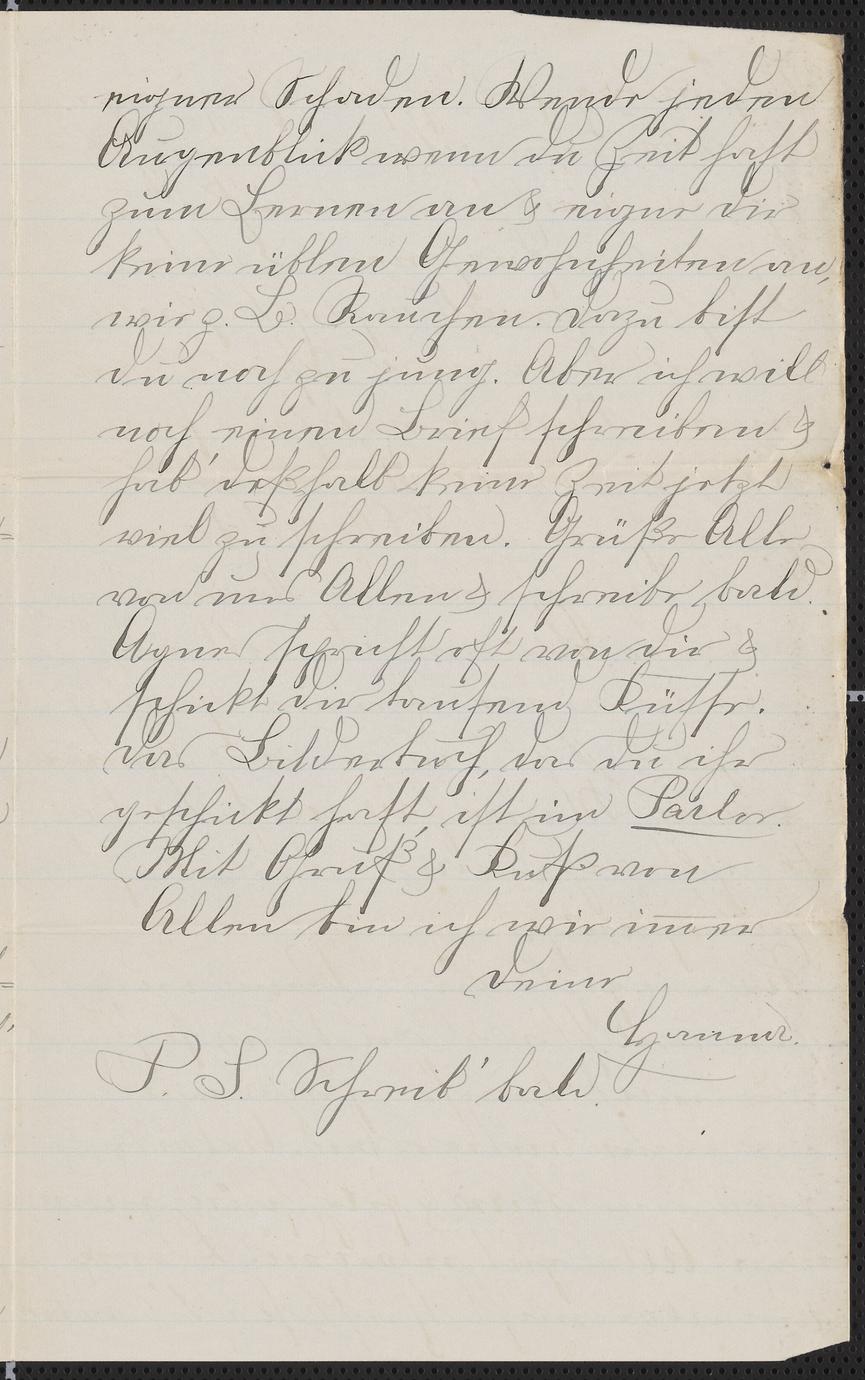 eigner Schaden. Wende jeden
Augenblick wenn du Zeit hast
zum Lernen an & eigne dir
keine üblen Gewohnheiten an,
wie z. B. Rauchen. Dazu bist
du noch zu jung. Aber ich will
noch einen Brief schreiben &
hab' deßhalb keine Zeit jetzt
viel zu schreiben. Grüße Alle
von uns Allen & schreibe bald.
Agnes spricht oft von dir &
schickt dir tausend Küsse.
Das Bilderbuch, das du ihr
geschickt hast, ist im Parlor.
Mit Gruß & Kuß von
Allen bin ich wie immer
Deine
Hanna.
P. S. Schreib' bald.